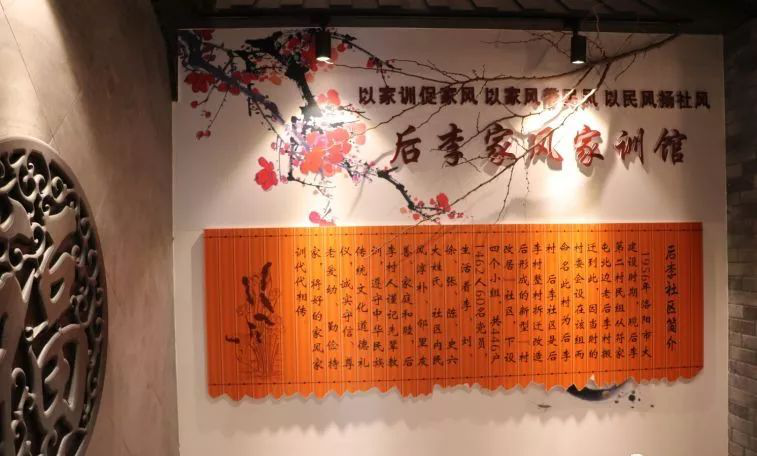 以家训促家风 以家风带民风 以民风扬社风
后李家风家训馆
后李社区简介
1956年洛阳市大
建设时期，现后李
第二村民组从符家
屯北边老后李村搬
迁到此，因当时的
村委会设在该组而
命名此村为后李
村。后李社区是后
李村整村拆迁改造
后形成的新型“村
改居”社区，下设
四个小组，共446户
1492人60名党员，
生活着李、刘、
徐、张、陈、史六
大姓氏，社区内民
风淳朴、邻里友
善、家庭和睦，后
李村人谨记先辈教
训，遵守中华民族
传统文化道德礼
仪，诚实守信、尊
老爱幼、勤俭持
家，将好的家风家
训代代相传